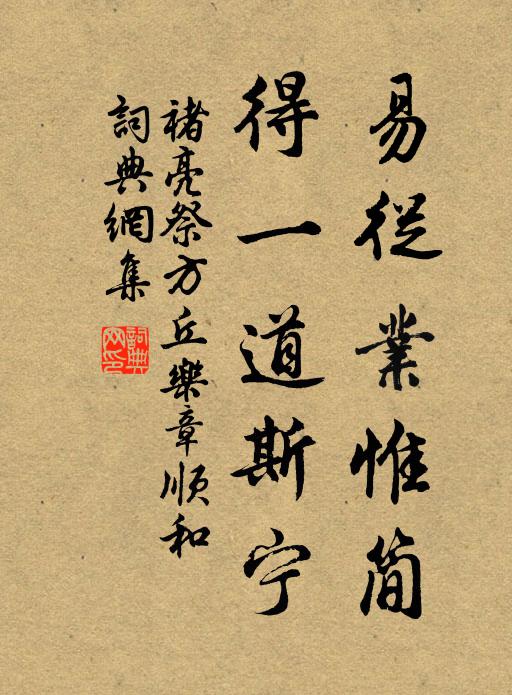 易從業惟簡
得一道斯宁
褚亮祭方丘樂章順和
詞典網集
詞典網印